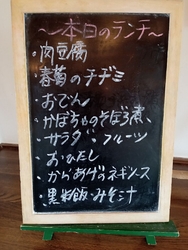 ～本日のランチ～
・肉豆腐
・春菊のチヂミ
・おでん
・かぼちゃのそぼろ煮、
・サラダ、フルーツ
・おひたし
・からあげのネギソース
・黒米飯・みそ汁